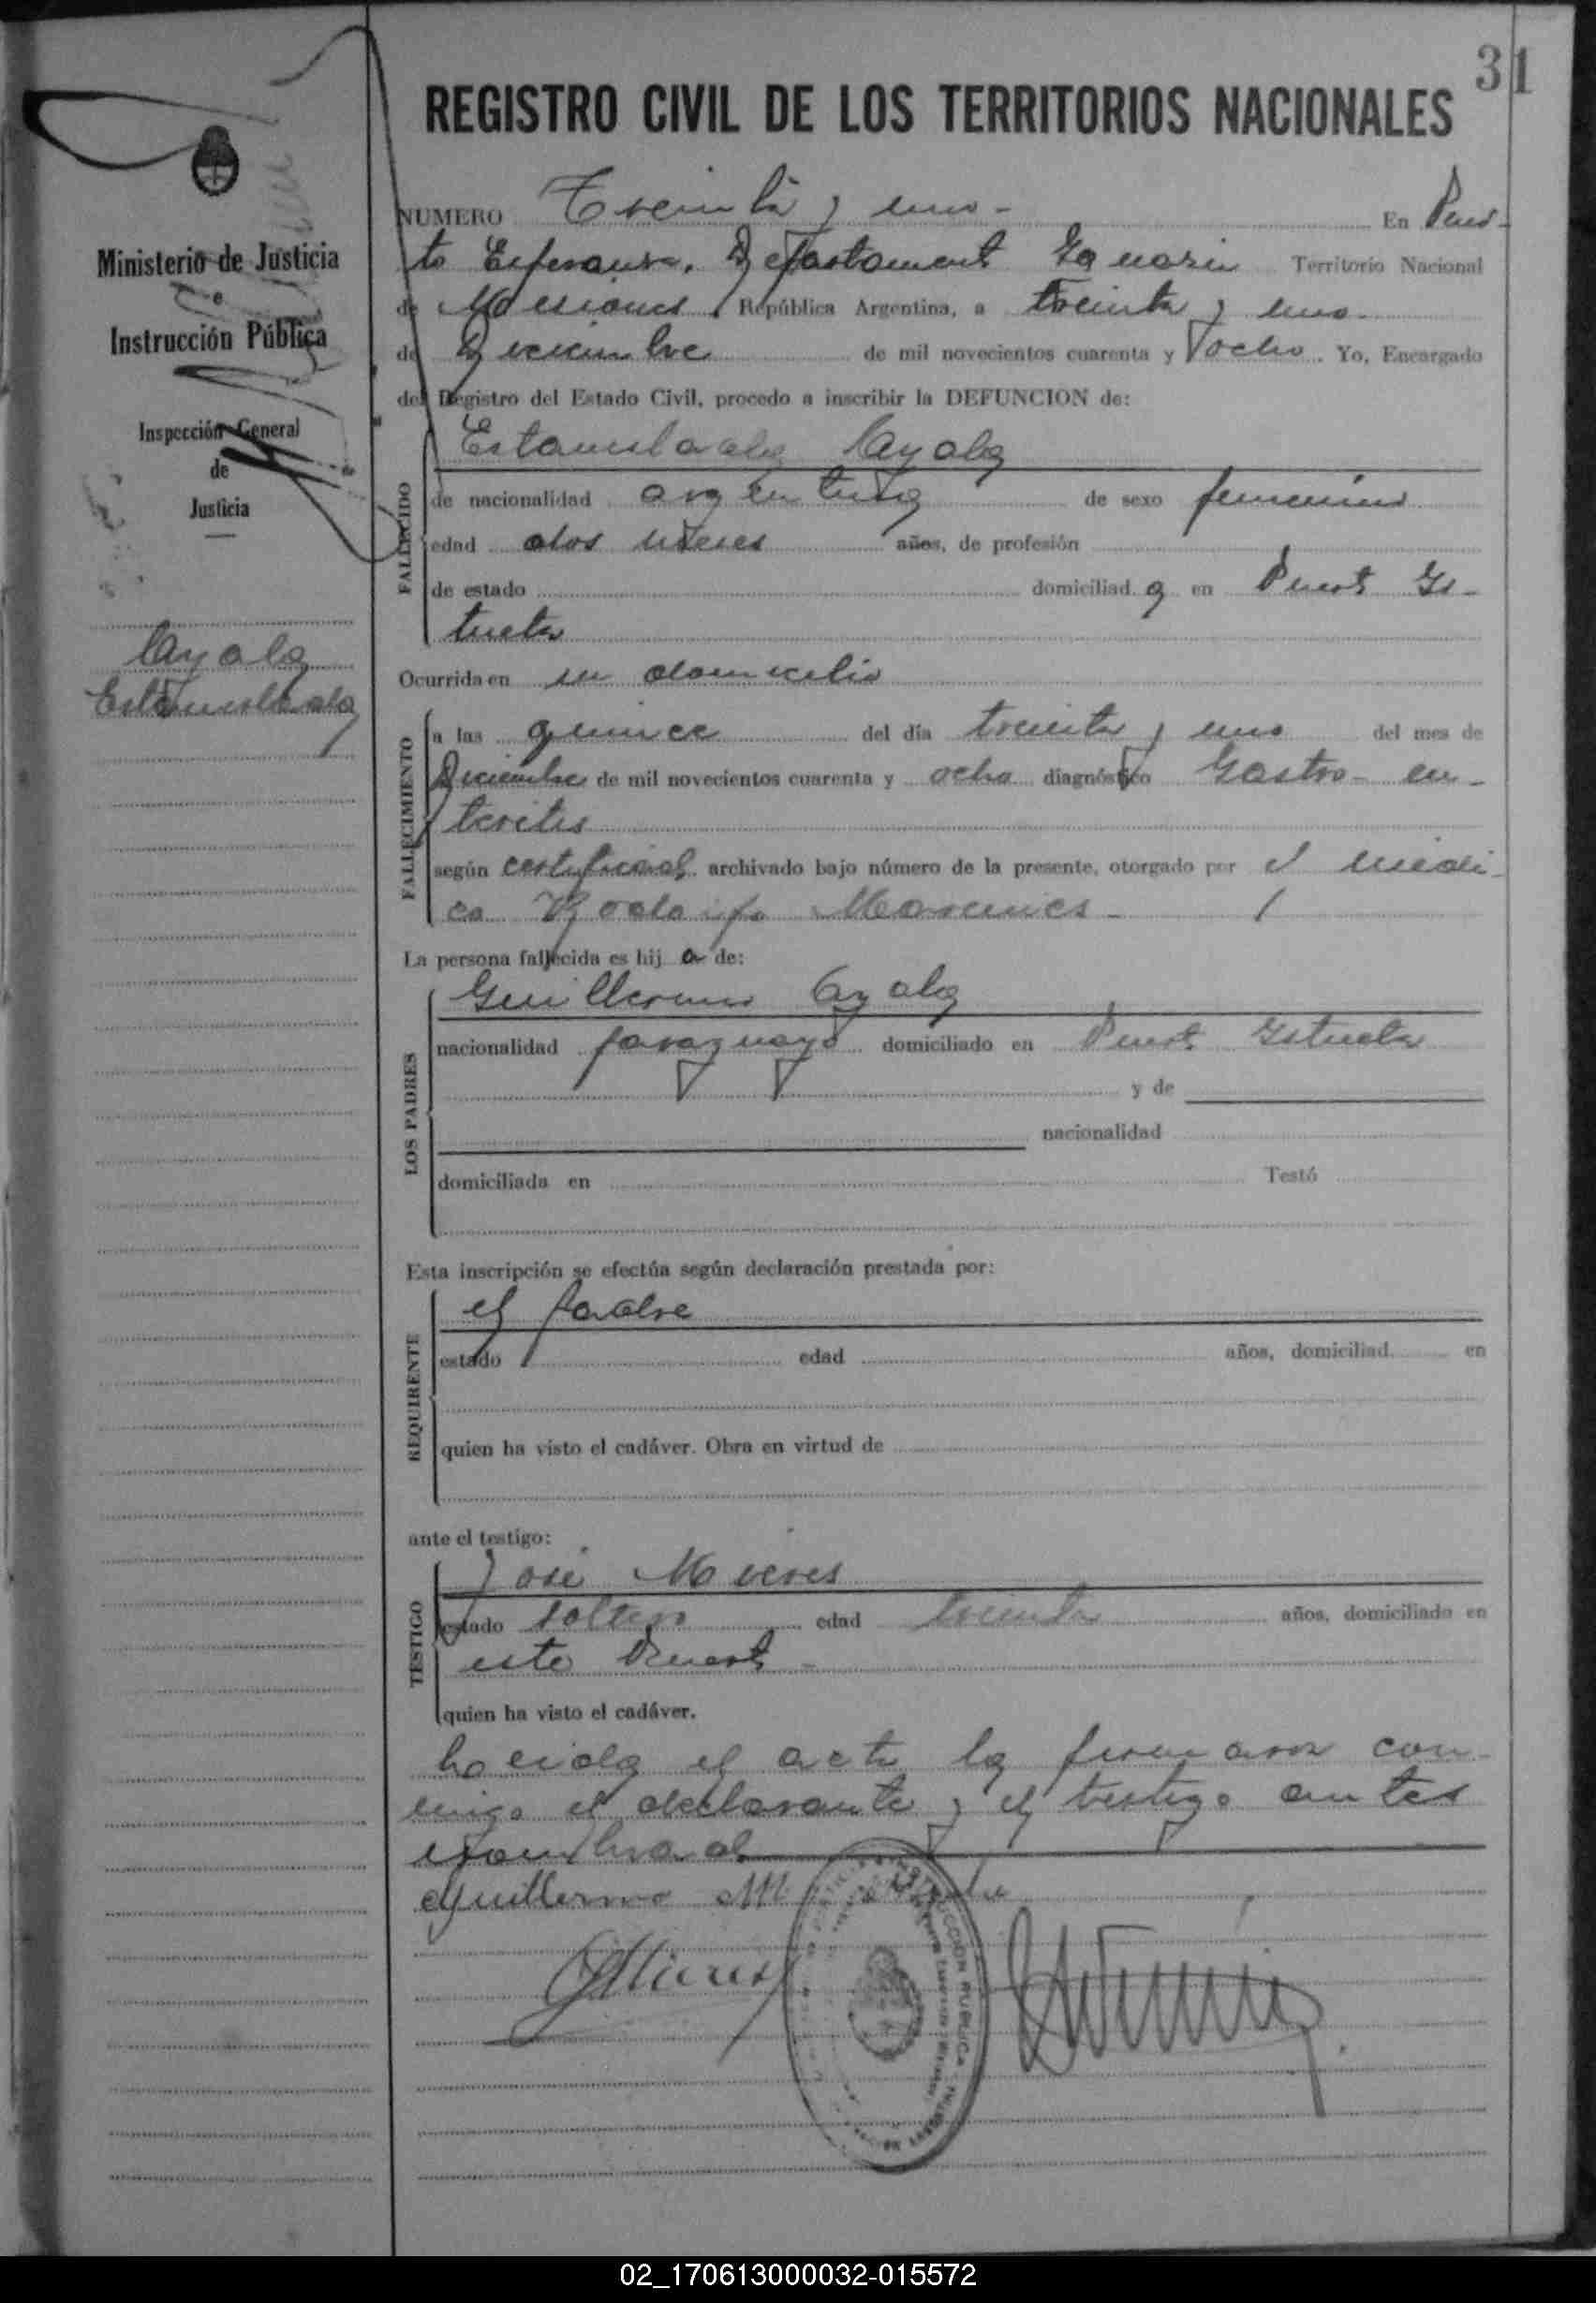 31
REGISTRO CIVIL DE LOS TERRITORIOS NACIONALES
Ministerio de Justicia
e
Instrucción Pública
Inspección General
de
Justicia
Ayala
NUMERO Treinta y uno - En Puer-
to Esperanza, Departament Territorio Nacional
de Misiones, República Argentina, a treinta y uno
de Diciembre de mil novecientos cuarenta y ocho. Yo, Encargado
del Registro del Estado Civil, procedo a inscribir la DEFUNCION de:
Ayala
FALLECIDO
de nacionalidad argentina de sexo femenino
edad dos meses años, de profesión
de estado domiciliad a en Puert
Ocurrida en su domicilio
FALLECIMIENTO
a las quince del día treinta y uno del mes de
Diciembre de mil novecientos cuarenta y ocho diagnóstico Gastro-en-
teritis
según certificad archivado bajo número de la presente, otorgado por el médi-
co Rodolfo
La persona fallecida es hij a de:
LOS PADRES
Guillermo Ayala
nacionalidad paraguayo domiciliado en Puert
y de
nacionalidad
domiciliada en Testó
Esta inscripción se efectúa según declaración prestada por:
REQUIRENTE
el padre
estado edad años, domiciliad en
quien ha visto el cadáver. Obra en virtud de
ante el testigo:
TESTIGO
José Mieres
estado soltero edad treinta años, domiciliado en
este Puert -
quien ha visto el cadáver.
el acta la firmaron con-
migo el declarante y el testigo antes
nombrad
Guillermo M.
Mieres
INSTRUCCION PUBLICA
02_170613000032-015572